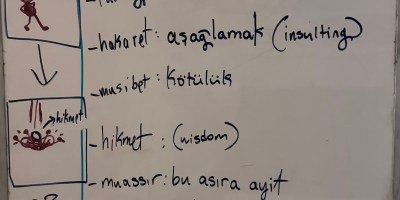 -hakaret: aşağlamak (insulting)
-musibet: Kötülük
→hikmet
-hikmet: (wisdom)
-muassır: bu asıra ayit